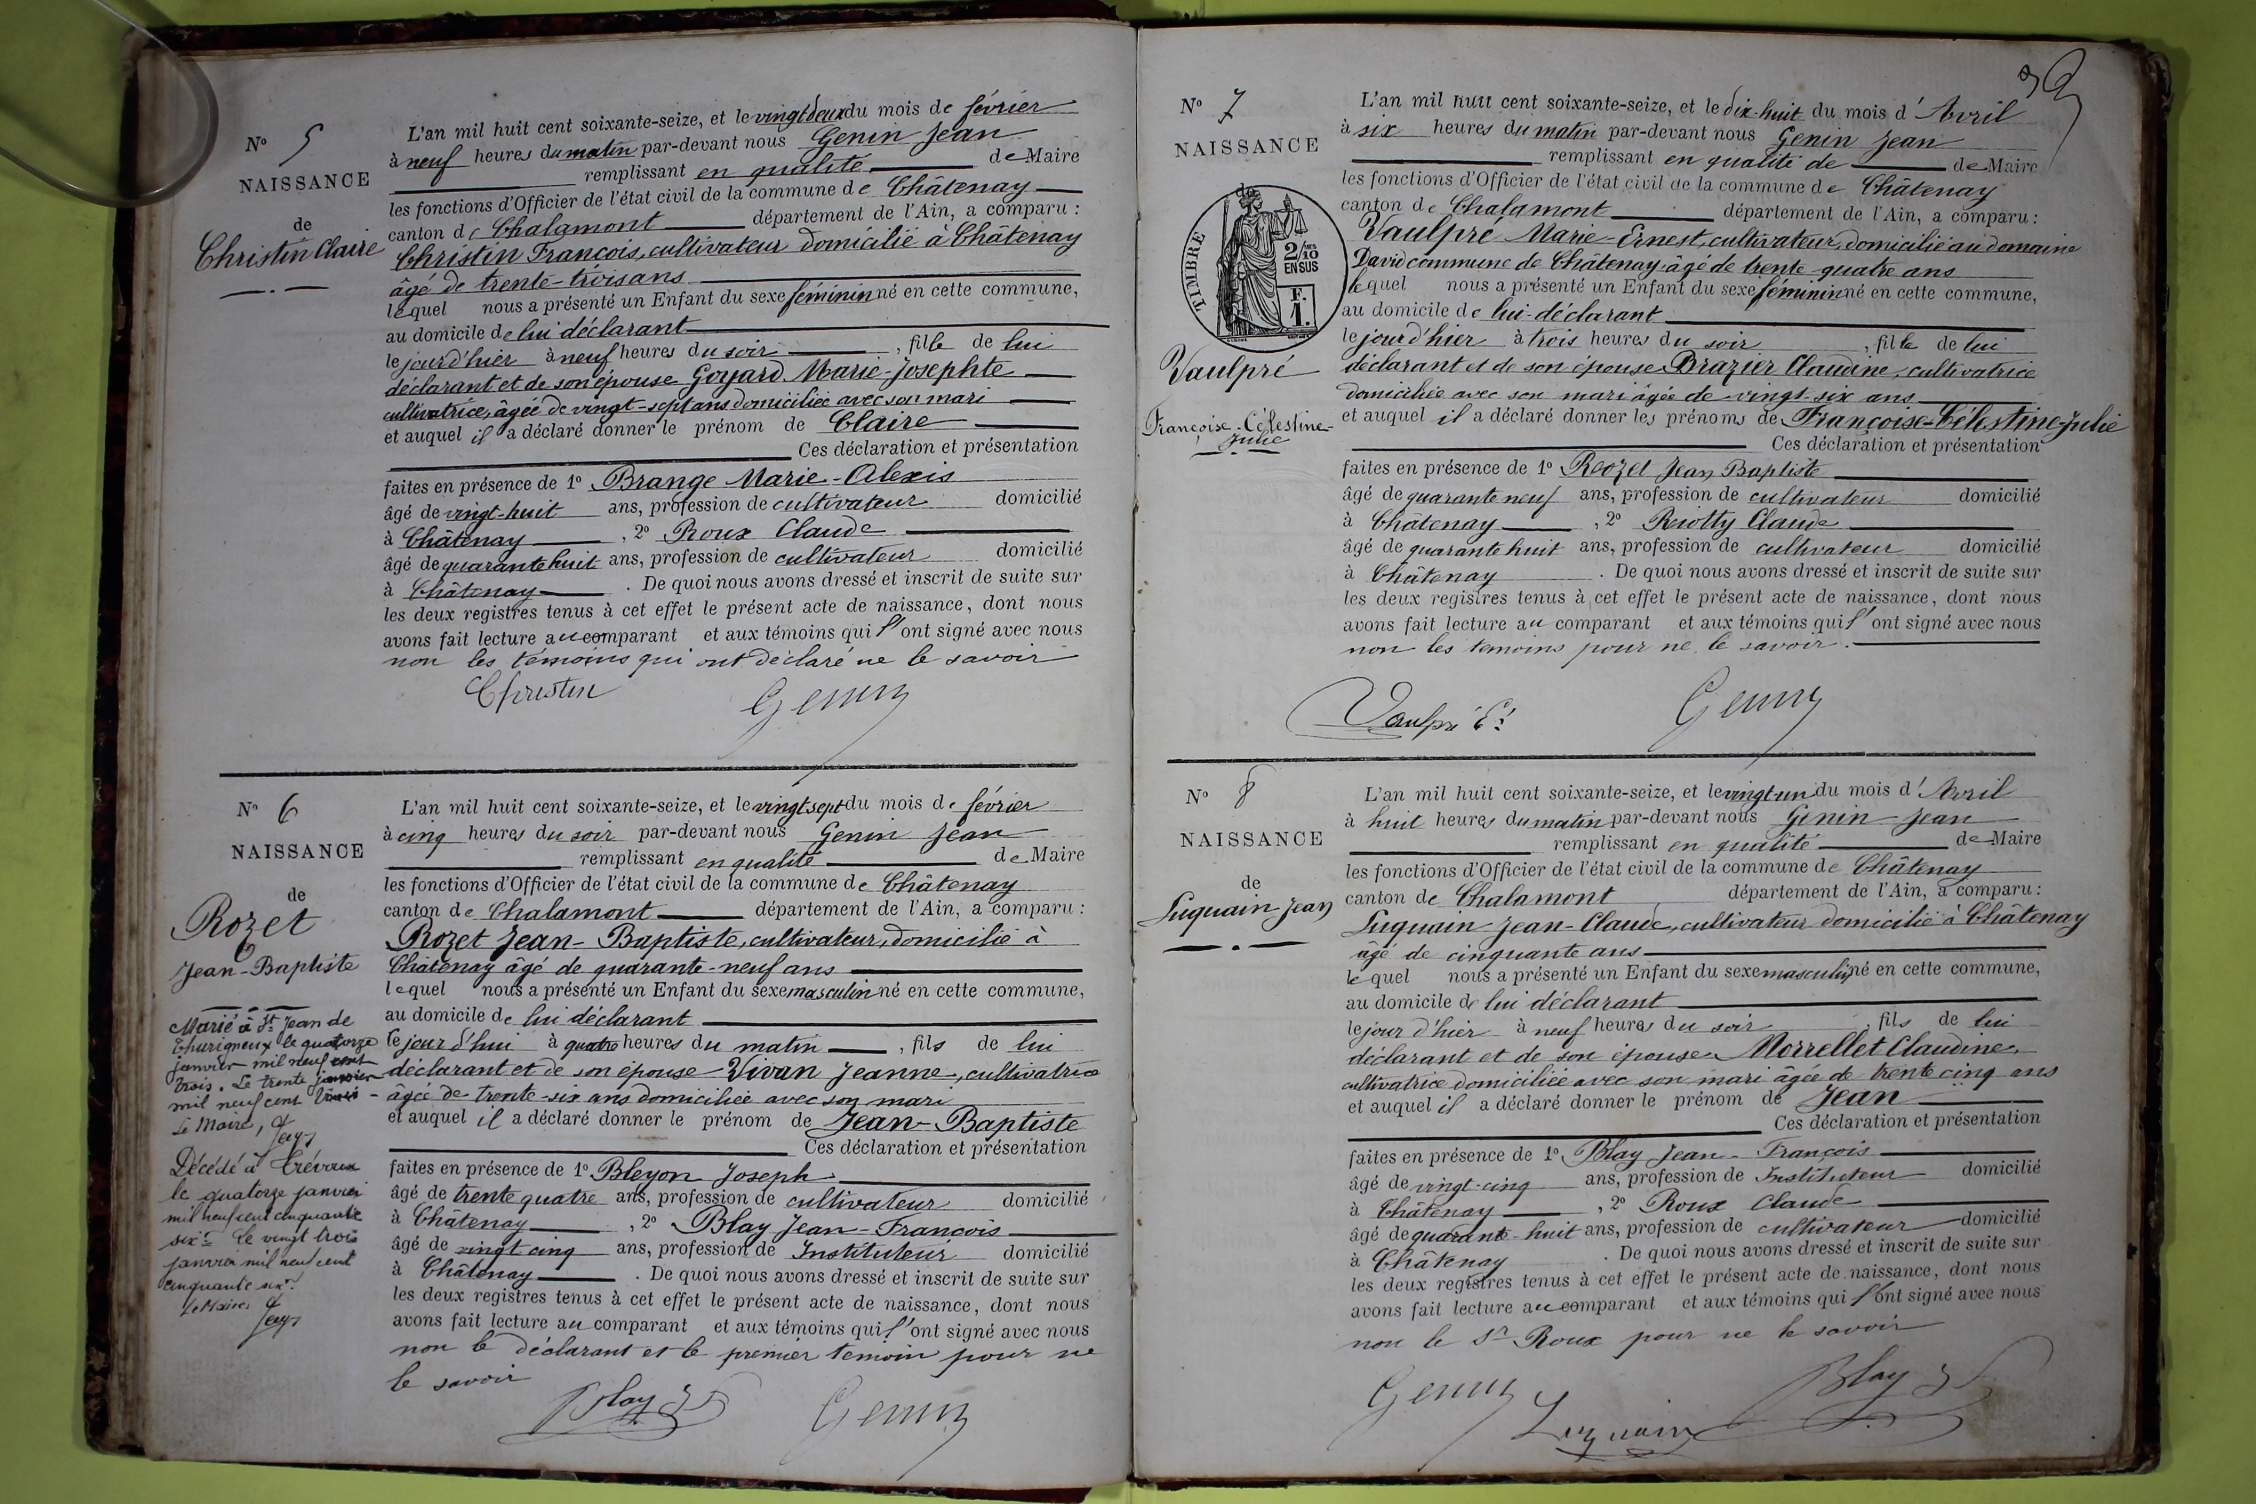 N° 5
NAISSANCE
de
Christin Claire
L'an mil huit cent soixante-seize, et le vingt deux du mois de février
à neuf heures du matin par-devant nous Genin Jean
remplissant en qualité de Maire
les fonctions d'Officier de l'état civil de la commune de Châtenay
canton de Chalamont département de l'Ain, a comparu :
Christin François, cultivateur domicilié à Châtenay
âgé de trente-trois ans
lequel nous a présenté un Enfant du sexe féminin né en cette commune,
au domicile de lui déclarant
le jour d'hier à neuf heures du soir, fille de lui
déclarant et de son épouse Goyard Marie-Josephte
cultivatrice, âgée de vingt-sept ans domiciliée avec son mari
et auquel il a déclaré donner le prénom de Claire
Ces déclaration et présentation
faites en présence de 1° Brange Marie-Alexis
âgé de vingt-huit ans, profession de cultivateur domicilié
à Châtenay, 2° Roux Claude
âgé de quarante huit ans, profession de cultivateur domicilié
à Châtenay. De quoi nous avons dressé et inscrit de suite sur
les deux registres tenus à cet effet le présent acte de naissance, dont nous
avons fait lecture au comparant et aux témoins qui l'ont signé avec nous
non les témoins qui ont déclaré ne le savoir
Christin Genin
N° 6
NAISSANCE
de
Rozet
Jean-Baptiste
Marié à St Jean de
Thurigneux le quatorze
janvier mil neuf cent
trois. Le trente janvier
mil neuf cent trois
Le Maire,
Décédé à Trévoux
le quatorze janvier
mil neuf cent cinquante
six. Le vingt trois
janvier mil neuf cent
cinquante six.
Le Maire
L'an mil huit cent soixante-seize, et le vingt sept du mois de février
à cinq heures du soir par-devant nous Genin Jean
remplissant en qualité de Maire
les fonctions d'Officier de l'état civil de la commune de Châtenay
canton de Chalamont département de l'Ain, a comparu :
Rozet Jean-Baptiste, cultivateur, domicilié à
Châtenay âgé de quarante-neuf ans
lequel nous a présenté un Enfant du sexe masculin né en cette commune,
au domicile de lui déclarant
le jour d'hui à quatre heures du matin, fils de lui
déclarant et de son épouse Vivan Jeanne, cultivatrice
âgée de trente-six ans domiciliée avec son mari
et auquel il a déclaré donner le prénom de Jean-Baptiste
Ces déclaration et présentation
faites en présence de 1° Bleyon Joseph
âgé de trente quatre ans, profession de cultivateur domicilié
à Châtenay, 2° Blay Jean-François
âgé de vingt cinq ans, profession de Instituteur domicilié
à Châtenay. De quoi nous avons dressé et inscrit de suite sur
les deux registres tenus à cet effet le présent acte de naissance, dont nous
avons fait lecture au comparant et aux témoins qui l'ont signé avec nous
non le déclarant et le premier témoin pour ne
le savoir
Blay Genin
N° 7
NAISSANCE
de
TIMBRE
2/10
EN SUS
F.
1.
Vaulpré
Françoise-Célestine-
Julie
L'an mil huit cent soixante-seize, et le dix-huit du mois d'Avril
à six heures du matin par-devant nous Genin Jean
remplissant en qualité de de Maire
les fonctions d'Officier de l'état civil de la commune de Châtenay
canton de Chalamont département de l'Ain, a comparu :
Vaulpré Marie-Ernest, cultivateur, domicilié au domaine
David commune de Châtenay âgé de trente-quatre ans
lequel nous a présenté un Enfant du sexe féminin né en cette commune,
au domicile de lui-déclarant
le jour d'hier à trois heures du soir, fille de lui
déclarant et de son épouse Brazier Claudine, cultivatrice
domiciliée avec son mari âgée de vingt-six ans
et auquel il a déclaré donner les prénoms de Françoise-Célestine-Julie
Ces déclaration et présentation
faites en présence de 1° Rozet Jean Baptiste
âgé de quarante neuf ans, profession de cultivateur domicilié
à Châtenay, 2° Riotty Claude
âgé de quarante huit ans, profession de cultivateur domicilié
à Châtenay. De quoi nous avons dressé et inscrit de suite sur
les deux registres tenus à cet effet le présent acte de naissance, dont nous
avons fait lecture au comparant et aux témoins qui l'ont signé avec nous
non les témoins pour ne le savoir.
Vaulpré Et Genin
N° 8
NAISSANCE
de
Luquain Jean
L'an mil huit cent soixante-seize, et le vingt-un du mois d'Avril
à huit heures du matin par-devant nous Genin Jean
remplissant en qualité de Maire
les fonctions d'Officier de l'état civil de la commune de Châtenay
canton de Chalamont département de l'Ain, a comparu :
Luquain Jean-Claude, cultivateur domicilié à Châtenay
âgé de cinquante ans
lequel nous a présenté un Enfant du sexe masculin né en cette commune,
au domicile de lui déclarant
le jour d'hier à neuf heures du soir, fils de lui
déclarant et de son épouse Morrellet Claudine,
cultivatrice domiciliée avec son mari âgée de trente cinq ans
et auquel il a déclaré donner le prénom de Jean
Ces déclaration et présentation
faites en présence de 1° Blay Jean-François
âgé de vingt-cinq ans, profession de Instituteur domicilié
à Châtenay, 2° Roux Claude
âgé de quarante-huit ans, profession de cultivateur domicilié
à Châtenay. De quoi nous avons dressé et inscrit de suite sur
les deux registres tenus à cet effet le présent acte de naissance, dont nous
avons fait lecture au comparant et aux témoins qui l'ont signé avec nous
non le Sr Roux pour ne le savoir
Genin Luquain Blay